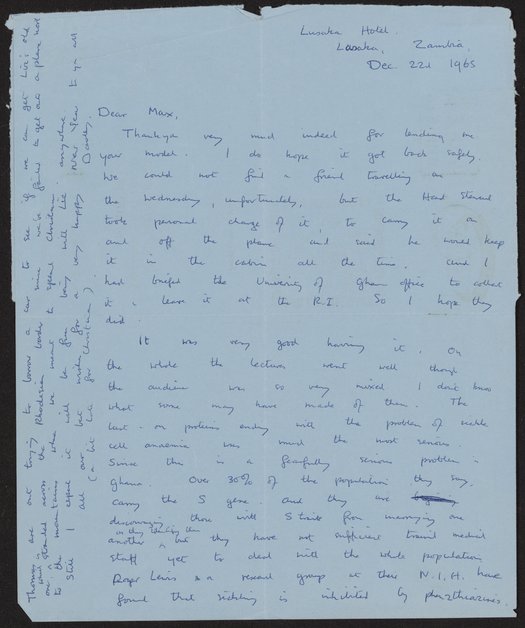 Lusaka Hotel.
Lusaka, Zambia,
Dec. 22d 1965
Dear Max,
Thankyou very much indeed for lending me
your model. I do hope it got back safely.
We could not find a friend travelling on
the Wednesday, unfortunately, but the Head Steward
took personal charge of it, to carry it on
and off the plane and said he would keep
it in the cabin all the time. And I
had briefed the University of Ghana office to collect
it & leave it at the R.I. So I hope they
did.
It was very good having it. On
the whole the lectures went well though
the audience was so very mixed I don't know
what some may have made of them. The
last - on proteins ending with the problem of sickle
cell anaemia was much the most serious.
Since this is a fearfully serious problem in
Ghana. Over 30% of the population they say,
carry the S gene. And they are
discouraging those with S trait from marrying one
another or they like they
but they have not sufficient trained medical
staff yet to deal with the whole population
Roger Lewis & a research group at there N.I.H. have
found that sickling is inhibited by phenothiazines.
Thomas is out trying to borrow a car to see if we can get Liz: old
one is stranded across the Rhodesian border since we've failed to get on a plane
to the mountains where we meant to spend Christmas.
Still I expect it will be fun being with Liz anywhere.
all our wishes for a very happy New Year to you all
(a bit late for Christmas) Dorothy.